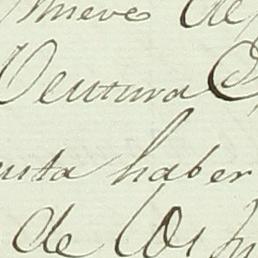 nueve de
Ventura
usta haber
de los